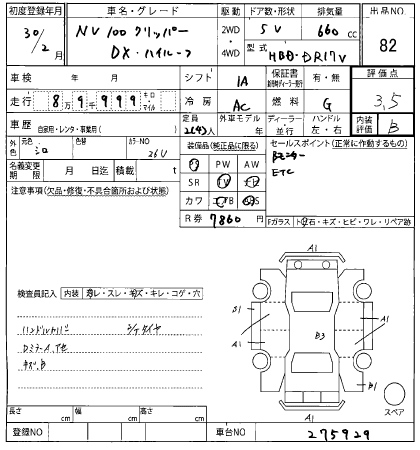 初度登録年月 車名・グレード 駆動 ドア数・形状 排気量 出品NO
30/2月 NV100クリッパー 2WD 5V 660cc 82
DX・ハイルーフ 4WD 型式 HBD-DR17V
車検 年 月 シフト 1A 保証書 有・無 評価点
走行 8万9千999 キロ・マイル 冷房 AC 燃料 G 3.5
車歴 自家用・レンタ・事業用( ) 定員 2(4)人 外車モデル 年 ディーラー・並行 ハンドル 左・右 内装評価 B
外色 元色 シロ 色替 カラーNO 26U 装備品(純正品に限る) セールスポイント(正常に作動するもの)
名義変更期限 月 日迄 積載 t PS PW AW Bモニター
注意事項(欠品・修復・不具合箇所および状態) SR TV ナビ ETC
カワ エアB ABS
R券 7860円 Fガラス トビ石・キズ・ヒビ・ワレ・リペア跡
検査員記入 内装 ヨゴレ・スレ・キズ・キレ・コゲ・穴
ハンドルカバー
DミラーA、下モ
キズ、B
A1
B1
A1
A1
B3
B1
A1
スペア
長さ cm 幅 cm 高さ cm
登録NO 車台NO 275929